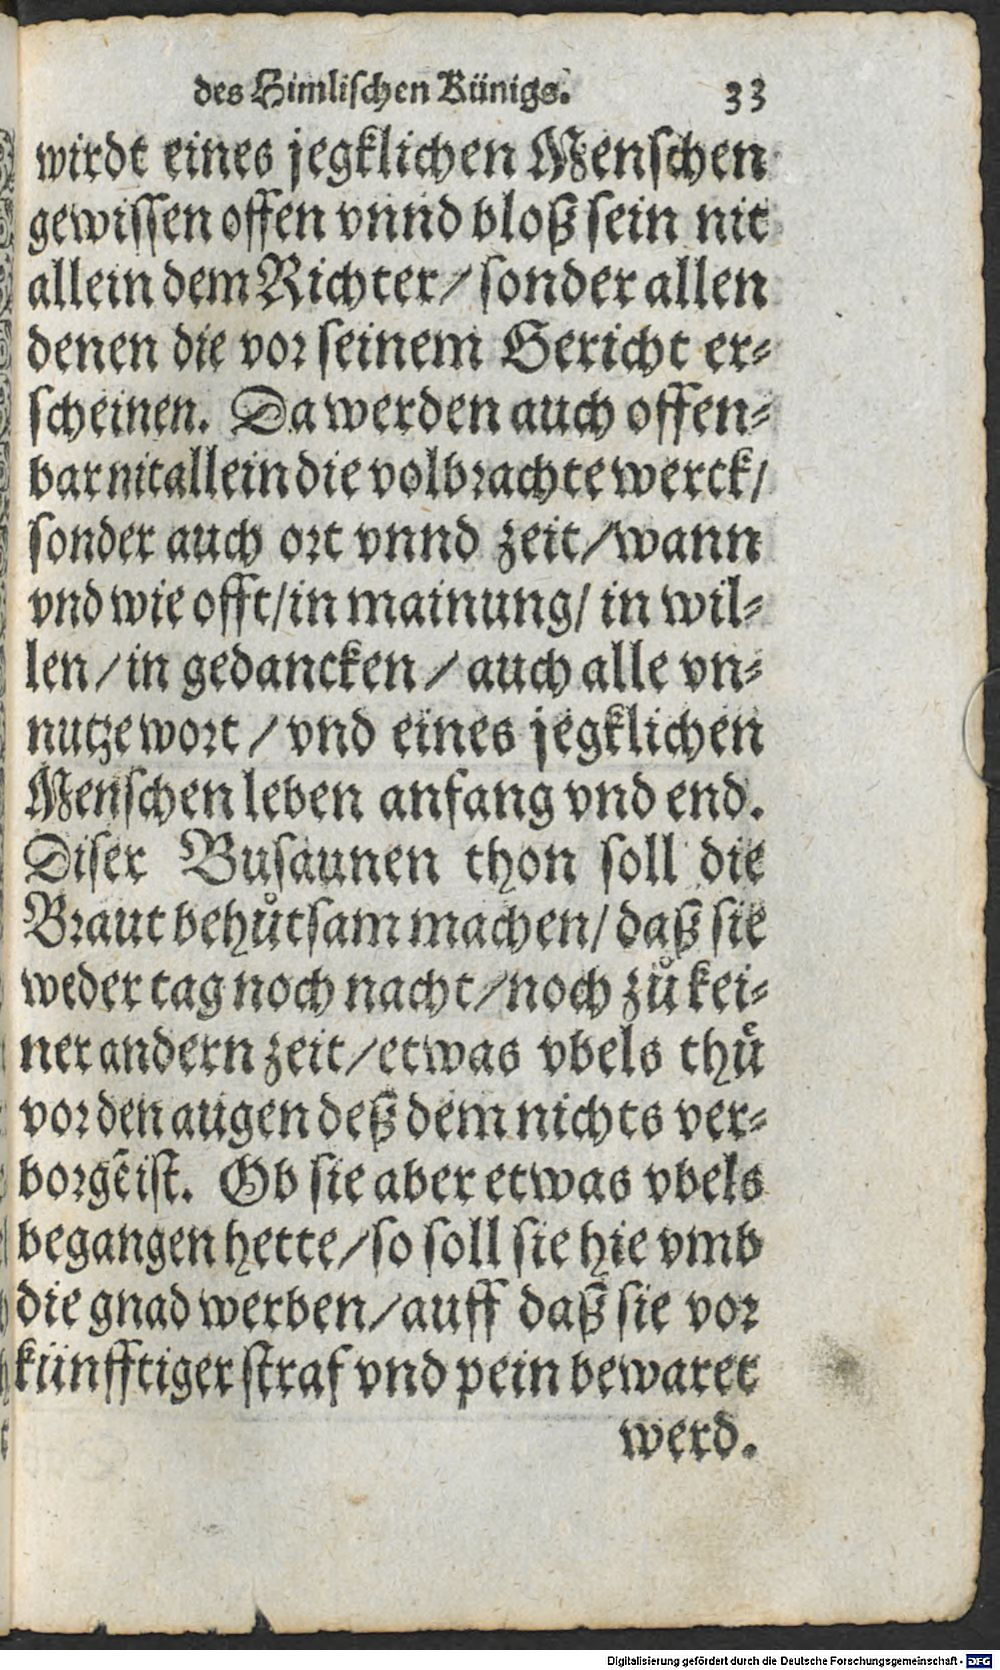 des Himlischen Künigs. 33
wirdt eines jegklichen Menschen
gewissen offen vnnd bloß sein nit
allein dem Richter/ sonder allen
denen die vor seinem Gericht er⸗
scheinen. Da werden auch offen⸗
bar nit allein die volbrachte werck/
sonder auch ort vnnd zeit/ wann
vnd wie offt/ in mainung/ in wil⸗
len/ in gedancken/ auch alle vn⸗
nutze wort/ vnd eines jegklichen
Menschen leben anfang vnd end.
Diser Busaunen thon soll die
Braut behuͤtsam machen/ daß sie
weder tag noch nacht/ noch zuͦ kei⸗
ner andern zeit/ etwas vbels thuͤ
vor den augen deß dem nichts ver⸗
borgẽ ist. Ob sie aber etwas vbels
begangen hette/ so soll sie hie vmb
die gnad werben/ auff daß sie vor
künfftiger straf vnd pein bewaret
werd.
Digitalisierung gefördert durch die Deutsche Forschungsgemeinschaft - DFG